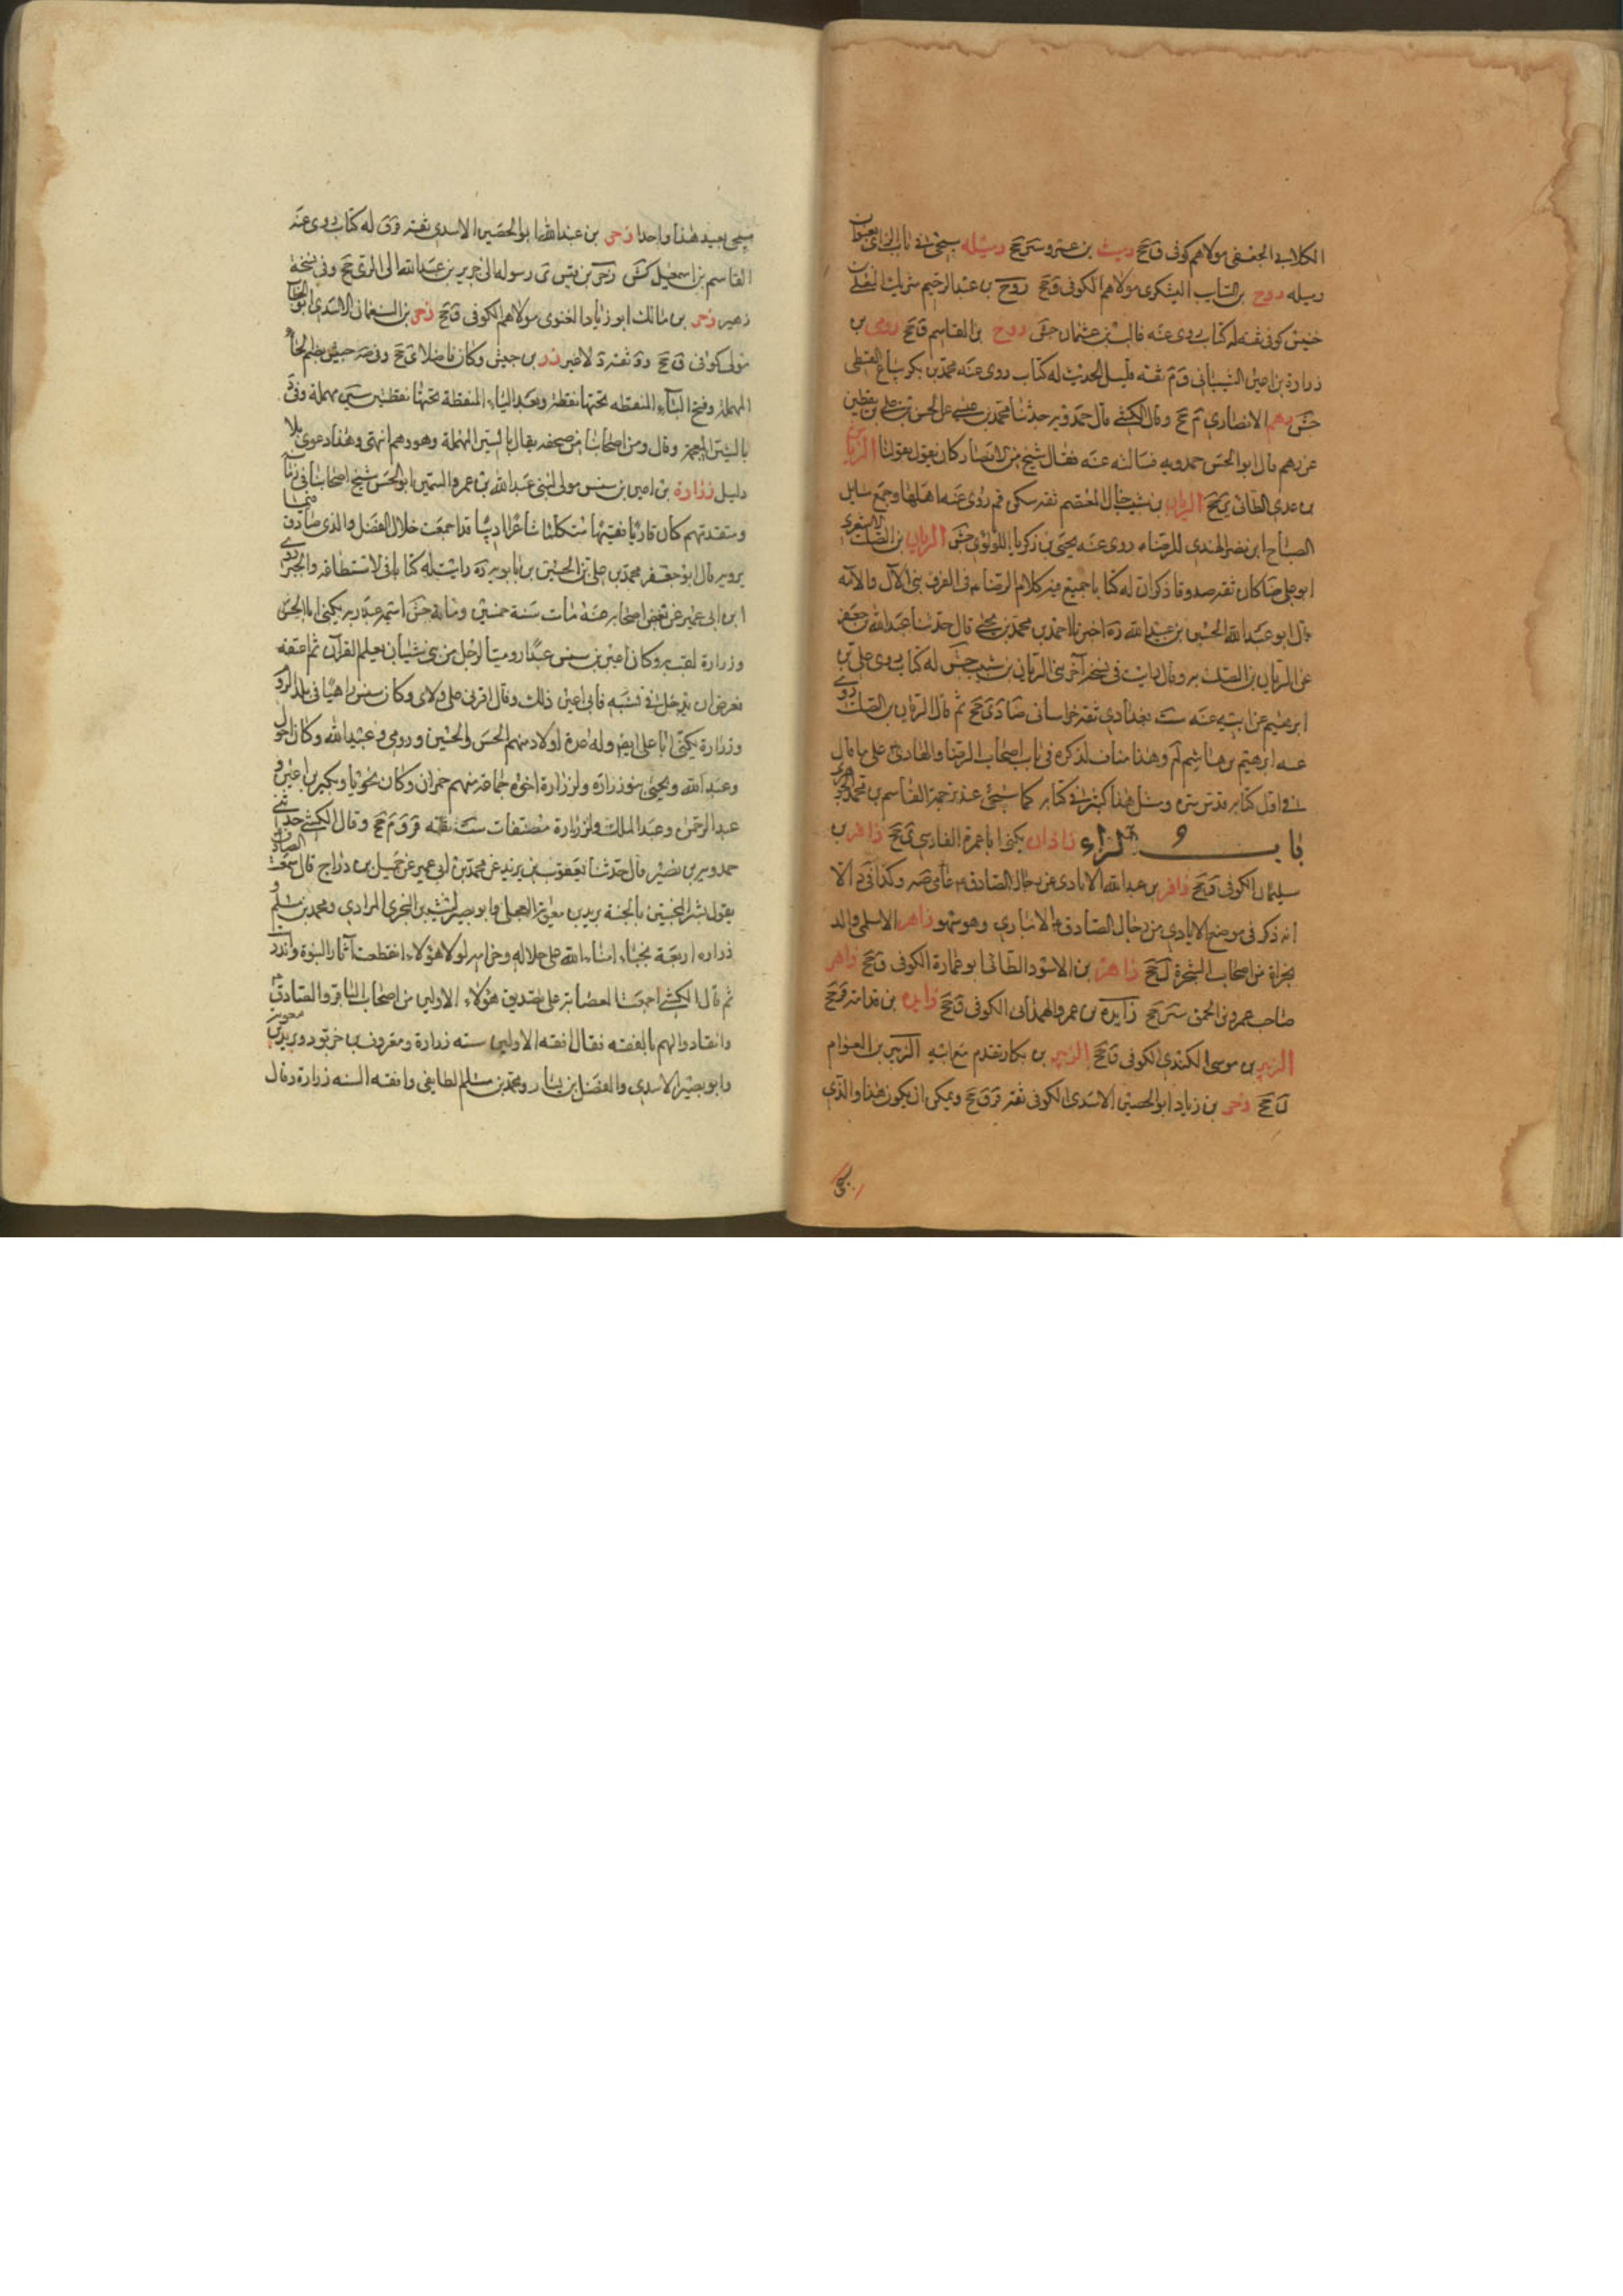 الكلابي الجعفي مولاهم كوفي ق جخ ربيث بن عمرو سر جخ ربيله سيجئ في باب الزاي بعنوان
ربيله روح بن السايب اليشكري مولاهم الكوفي ق جخ روح بن عبد الرحيم شريك المعلى بن
خنيس كوفي ثقة له كتاب روى عنه غالب بن عثمان جش روح بن القاسم ق جخ رومي بن
زرارة بن اعين الشيباني ق م ثقة قليل الحديث له كتاب روى عنه محمد بن بكر بياع القطن
جش رهم الانصاري م جخ وقال الكشي قال حمدويه حدثنا محمد بن عيسى عن الحسن بن علي بن يقطين
عن رهم قال ابو الحسن حمدويه فسالته عنه فقال شيخ من الانصار كان يقول بقولنا الريان
بن عدي الطائي ى جخ الريان بن شبيب خال المعتصم ثقة سكن قم روى عنه اهلها وجمع مسايل
الصباح ابن نصر الهندي للرضا ع روى عنه يحيى بن زكريا اللؤلؤي جش الريان بن الصلت الاشعري
ابو علي ضا كان ثقة صدوقا ذكر ان له كتابا جمع فيه كلام الرضا ع في الفرق بين الآل والامة
قال ابو عبد الله الحسين بن عبيد الله ره اخبرنا احمد بن محمد بن يحيى قال حدثنا عبد الله بن جعفر
عن الريان بن الصلت به وقال رايت في نسخة اخرى الريان بن شبيب جش له كتاب روى علي بن
ابرهيم عن ابيه عنه ست بغدادي ثقة خراساني ضا دى جخ ثم قال الريان بن الصلت روى
عنه ابرهيم بن هاشم لم وهذا مناف لذكره في باب اصحاب الرضا والهادي ع على ما قال
في اول كتابه قدس سره ومثل هذا كثير في كتابه كما سيجئ عند ترجمة القاسم بن محمد الجوهري
باب الزاء زاذان يكنى ابا عمرة الفارسي ى جخ زافر بن
سليمان الكوفي ق جخ زافر بن عبد الله الايادي عن رجال الصادق ع ما مى صه وكذا في د الا
انه ذكر في موضع الايادي من رجال الصادق ع الانباري وهو سهو زاهر الاسلمي والد
مجزاة من اصحاب الشجرة ل جخ زاهر بن الاسود الطائي ابو عمارة الكوفي ق جخ زاهر
صاحب عمرو بن الحمق سر جخ زايدة بن عمرو الهمداني الكوفي ق جخ زايدة بن قدامة ق جخ
الزبير بن موسى الكندي الكوفي ق جخ الزبير بن بكار تقدم مع ابيه الزبير بن العوام
ل جخ زحر بن زياد ابو الحصين الاسدي الكوفي ثقة قر ق جخ ويمكن ان يكون هذا والذي
سيجئ بعيد هذا واحدا زحر بن عبد الله ابو الحصين الاسدي ثقة قر ق له كتاب روى عنه
القاسم بن اسمعيل جش زحر بن قيس ى رسوله الى جرير بن عبد الله الى الري جخ وفي نسخة
زهير زحر بن مالك ابو زياد الغنوي مولاهم الكوفي ق جخ زحر بن النعمان الاسدي ابو الخطاب
مولى كوفي ق جخ زر بن حبيش وكان فاضلا ى جخ وفي صه حبيش بضم الحاء
المهملة وفتح الباء المنقطة تحتها نقطة وبعد الياء المنقطة تحتها نقطتين سين مهملة وفي د
بالشين المعجمة وقال ومن اصحابنا من صحفه فقال بالسين المهملة وهو وهم انتهى وهذا دعوى بلا
دليل زرارة بن اعين بن سنسن مولى لبني عبد الله بن عمرو السمين ابو الحسن شيخ اصحابنا في زمانه
ومتقدمهم كان قاريا فقيها متكلما شاعرا اديبا قد اجتمعت خلال الفضل والدين صادق فيما
يرويه قال ابو جعفر محمد بن علي بن الحسين بن بابويه ره رايت له كتابا في الاستطاعة والجبر روى
ابن ابي عمير عن بعض اصحابه عنه مات سنة خمسين ومائة جش اسمه عبد ربه يكنى ابا الحسن
وزرارة لقب به وكان اعين بن سنسن عبدا روميا لرجل من بني شيبان تعلم القرآن ثم اعتقه
فعرض ان يدخل في نسبه فابى اعين ذلك وقال اقرني على ولائي وكان سنسن راهبا في بلد الروم
وزرارة يكنى ابا علي ايضا وله عدة اولاد منهم الحسن والحسين ورومي وعبيد الله وكان احول
وعبد الله ويحيى بنو زرارة ولزرارة اخوة جماعة منهم حمران وكان نحويا وبكير بن اعين و
عبد الرحمن وعبد الملك ولزرارة مصنفات ست ثقة قر ق م جخ وقال الكشي حدثني
حمدويه بن نصير قال حدثنا يعقوب بن يزيد عن محمد بن ابي عمير عن جميل بن دراج قال سمعت الصادق
يقول بشر المخبتين بالجنة بريد بن معوية العجلي وابو بصير ليث بن البختري المرادي ومحمد بن مسلم و
زرارة اربعة نجباء امناء الله على حلاله وحرامه لولا هؤلاء انقطعت آثار النبوة واندرست
ثم قال الكشي اجمعت العصابة على تصديق هؤلاء الاولين من اصحاب الباقر والصادق ع
وانقادوا لهم بالفقه فقال افقه الاولين ستة زرارة ومعروف بن خربوذ وبريد بن معوية
وابو بصير الاسدي والفضيل بن يسار ومحمد بن مسلم الطايفي وافقه الستة زرارة وقال